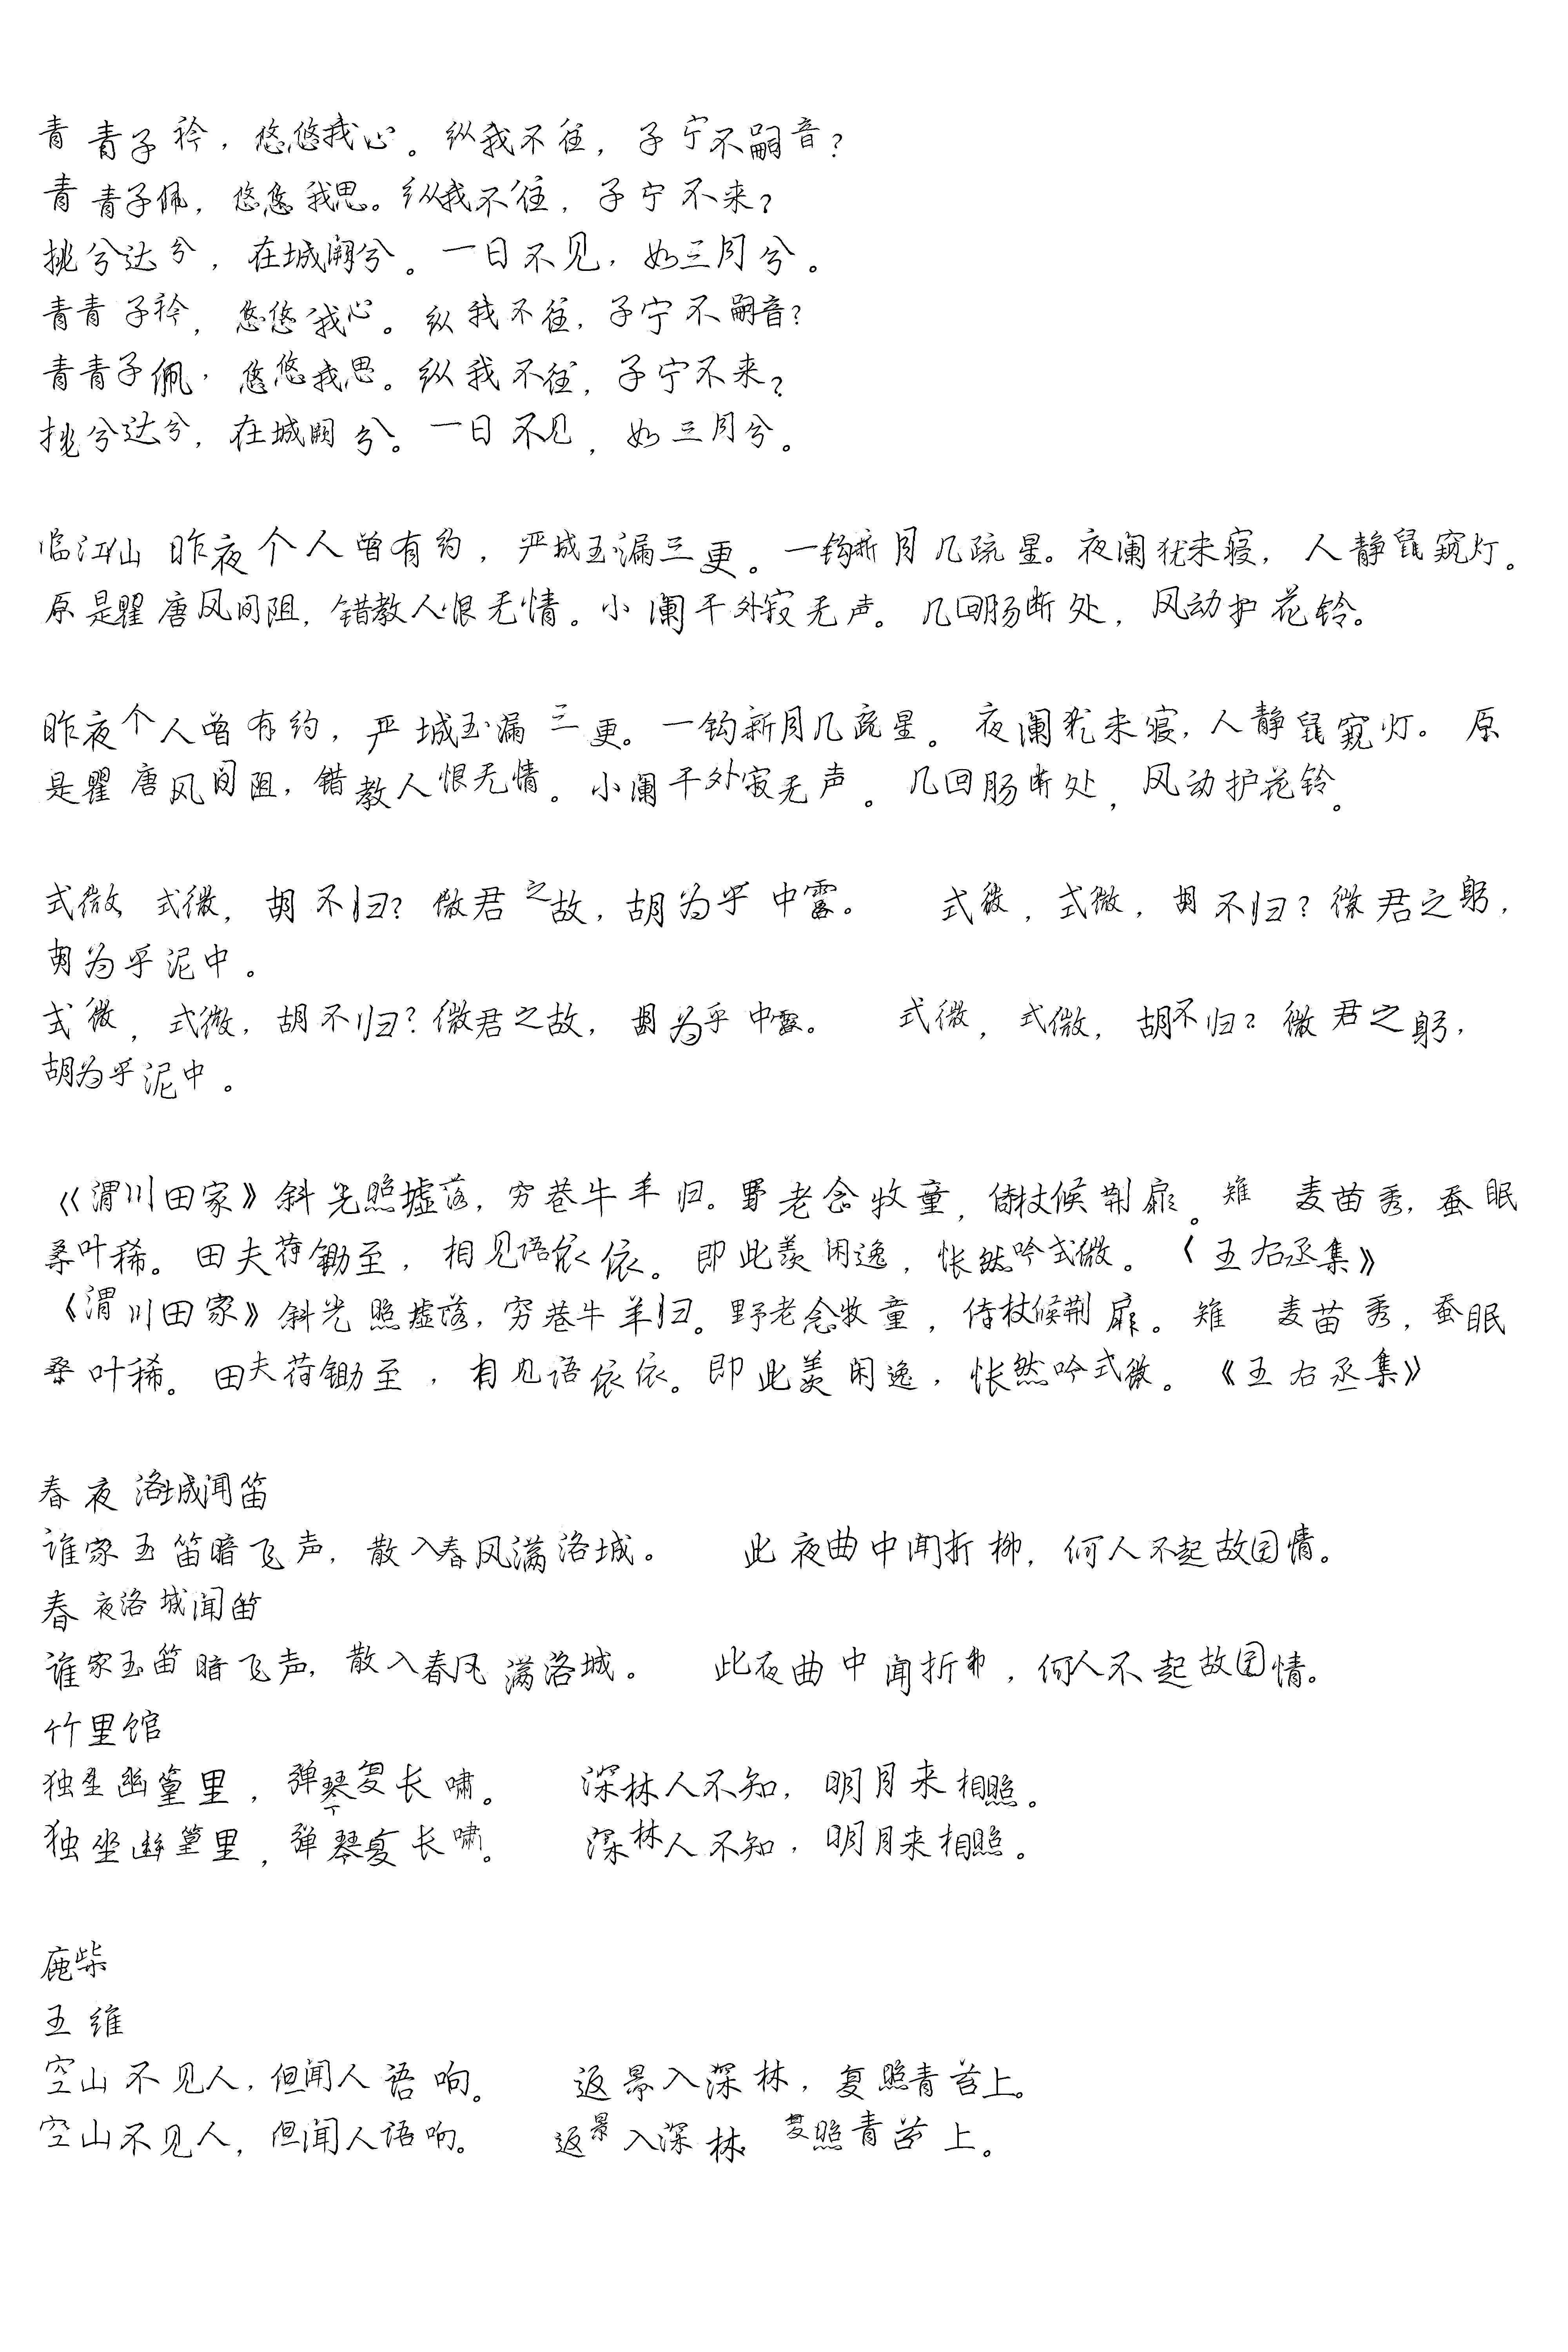 青青子衿，悠悠我心。纵我不往，子宁不嗣音？
青青子佩，悠悠我思。纵我不往，子宁不来？
挑兮达兮，在城阙兮。一日不见，如三月兮。
青青子衿，悠悠我心。纵我不往，子宁不嗣音？
青青子佩，悠悠我思。纵我不往，子宁不来？
挑兮达兮，在城阙兮。一日不见，如三月兮。
临江仙 昨夜个人曾有约，严城玉漏三更。一钩新月几疏星。夜阑犹未寝，人静鼠窥灯。
原是瞿唐风间阻，错教人恨无情。小阑干外寂无声。几回肠断处，风动护花铃。
昨夜个人曾有约，严城玉漏三更。一钩新月几疏星。夜阑犹未寝，人静鼠窥灯。原
是瞿唐风间阻，错教人恨无情。小阑干外寂无声。几回肠断处，风动护花铃。
式微，式微，胡不归？微君之故，胡为乎中露。 式微，式微，胡不归？微君之躬，
胡为乎泥中。
式微，式微，胡不归？微君之故，胡为乎中露。 式微，式微，胡不归？微君之躬，
胡为乎泥中。
《渭川田家》斜光照墟落，穷巷牛羊归。野老念牧童，倚杖候荆扉。雉 麦苗秀，蚕眠
桑叶稀。田夫荷锄至，相见语依依。即此羡闲逸，怅然吟式微。《王右丞集》
《渭川田家》斜光照墟落，穷巷牛羊归。野老念牧童，倚杖候荆扉。雉 麦苗秀，蚕眠
桑叶稀。田夫荷锄至，相见语依依。即此羡闲逸，怅然吟式微。《王右丞集》
春夜洛城闻笛
谁家玉笛暗飞声，散入春风满洛城。 此夜曲中闻折柳，何人不起故园情。
春夜洛城闻笛
谁家玉笛暗飞声，散入春风满洛城。 此夜曲中闻折柳，何人不起故园情。
竹里馆
独坐幽篁里，弹琴复长啸。 深林人不知，明月来相照。
独坐幽篁里，弹琴复长啸。 深林人不知，明月来相照。
鹿柴
王维
空山不见人，但闻人语响。 返景入深林，复照青苔上。
空山不见人，但闻人语响。 返景入深林，复照青苔上。